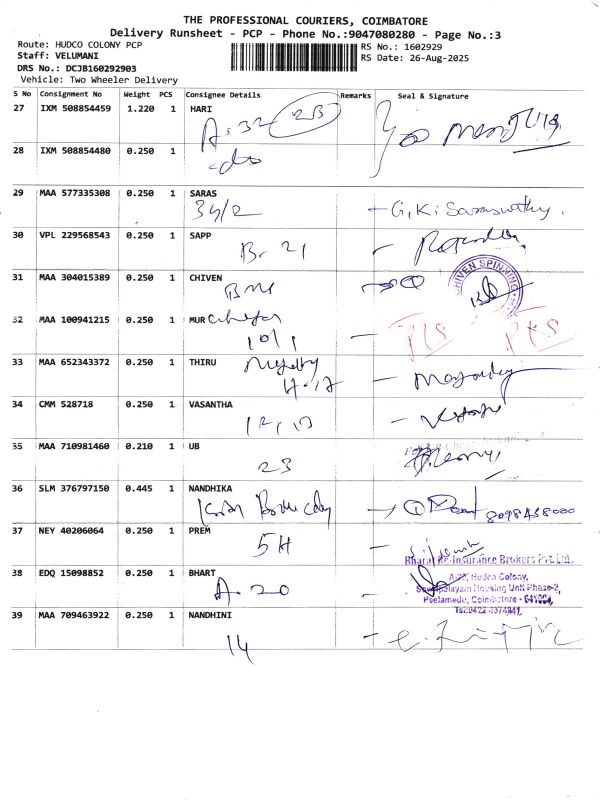 THE PROFESSIONAL COURIERS, COIMBATORE
Delivery Runsheet - PCP - Phone No.:9047080280 - Page No.:3
Route: HUDCO COLONY PCP RS No.: 1602929
Staff: VELUMANI RS Date: 26-Aug-2025
DRS No.: DCJB160292903
Vehicle: Two Wheeler Delivery
S No Consignment No Weight PCS Consignee Details Remarks Seal & Signature
27 IXM 508854459 1.220 1 HARI
A-32 2B
28 IXM 508854480 0.250 1
-do
29 MAA 577335308 0.250 1 SARAS
34/2 - G.K. Saraswathy.
30 VPL 229568543 0.250 1 SAPP
B- 21
31 MAA 304015389 0.250 1 CHIVEN
CHIVEN SPINNING
32 MAA 100941215 0.250 1 MUR
10/1
33 MAA 652343372 0.250 1 THIRU
A-17
34 CMM 528718 0.250 1 VASANTHA
35 MAA 710981460 0.210 1 UB
23
36 SLM 376797150 0.445 1 NANDHIKA
37 NEY 40206064 0.250 1 PREM
5H
Bharat Re-insurance Brokers Pvt. Ltd.
38 EDQ 15098852 0.250 1 BHART
A-20
A-20, Hudco Colony,
Housing Unit Phase-2,
Peelamedu, Coimbatore - 641004,
39 MAA 709463922 0.250 1 NANDHINI
14